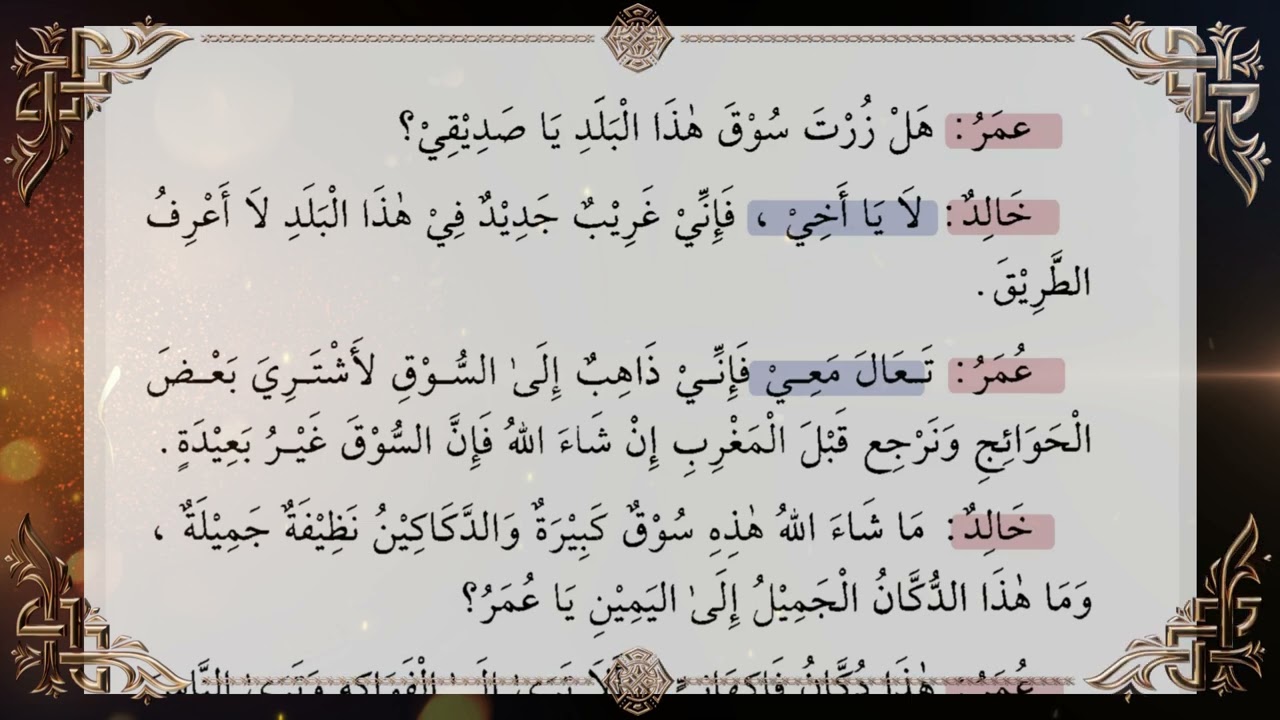 عمَرُ: هَلْ زُرْتَ سُوْقَ هٰذَا الْبَلَدِ يَا صَدِيْقِيْ؟
خَالِدٌ: لَا يَا أَخِيْ ، فَإِنِّيْ غَرِيْبٌ جَدِيْدٌ فِيْ هٰذَا الْبَلَدِ لَا أَعْرِفُ
الطَّرِيْقَ.
عُمَرُ: تَـعَالَ مَعِـيْ فَإِنِّـيْ ذَاهِبٌ إِلَىٰ السُّـوْقِ لأَشْتَـرِيَ بَعْـضَ
الْحَوَائِجِ وَنَرْجِع قَبْلَ الْمَغْرِبِ إِنْ شَاءَ اللهُ فَإِنَّ السُّوْقَ غَيْـرُ بَعِيْدَةٍ.
خَالِدٌ: مَا شَاءَ اللهُ هٰذِهِ سُوْقٌ كَبِيْرَةٌ وَالدَّكَاكِيْنُ نَظِيْفَةٌ جَمِيْلَةٌ ،
وَمَا هٰذَا الدُّكَّانُ الْجَمِيْلُ إِلَىٰ اليَمِيْنِ يَا عُمَرُ؟
عُمَرُ: هٰذَا دُكَّانُ فَاكِهَانِـيٍّ أَلَا تَرَىٰ إِلَىٰ الْفَوَاكِهِ وَتَرَىٰ